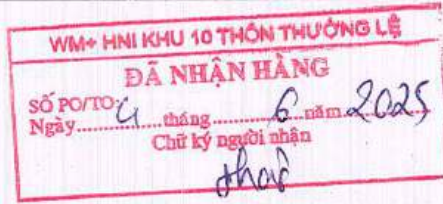 WM+ HNI KHU 10 THÔN THƯỜNG LỆ
ĐÃ NHẬN HÀNG
SỐ PO/TO:
Ngày 4 tháng 6 năm 2025
Chữ ký người nhận